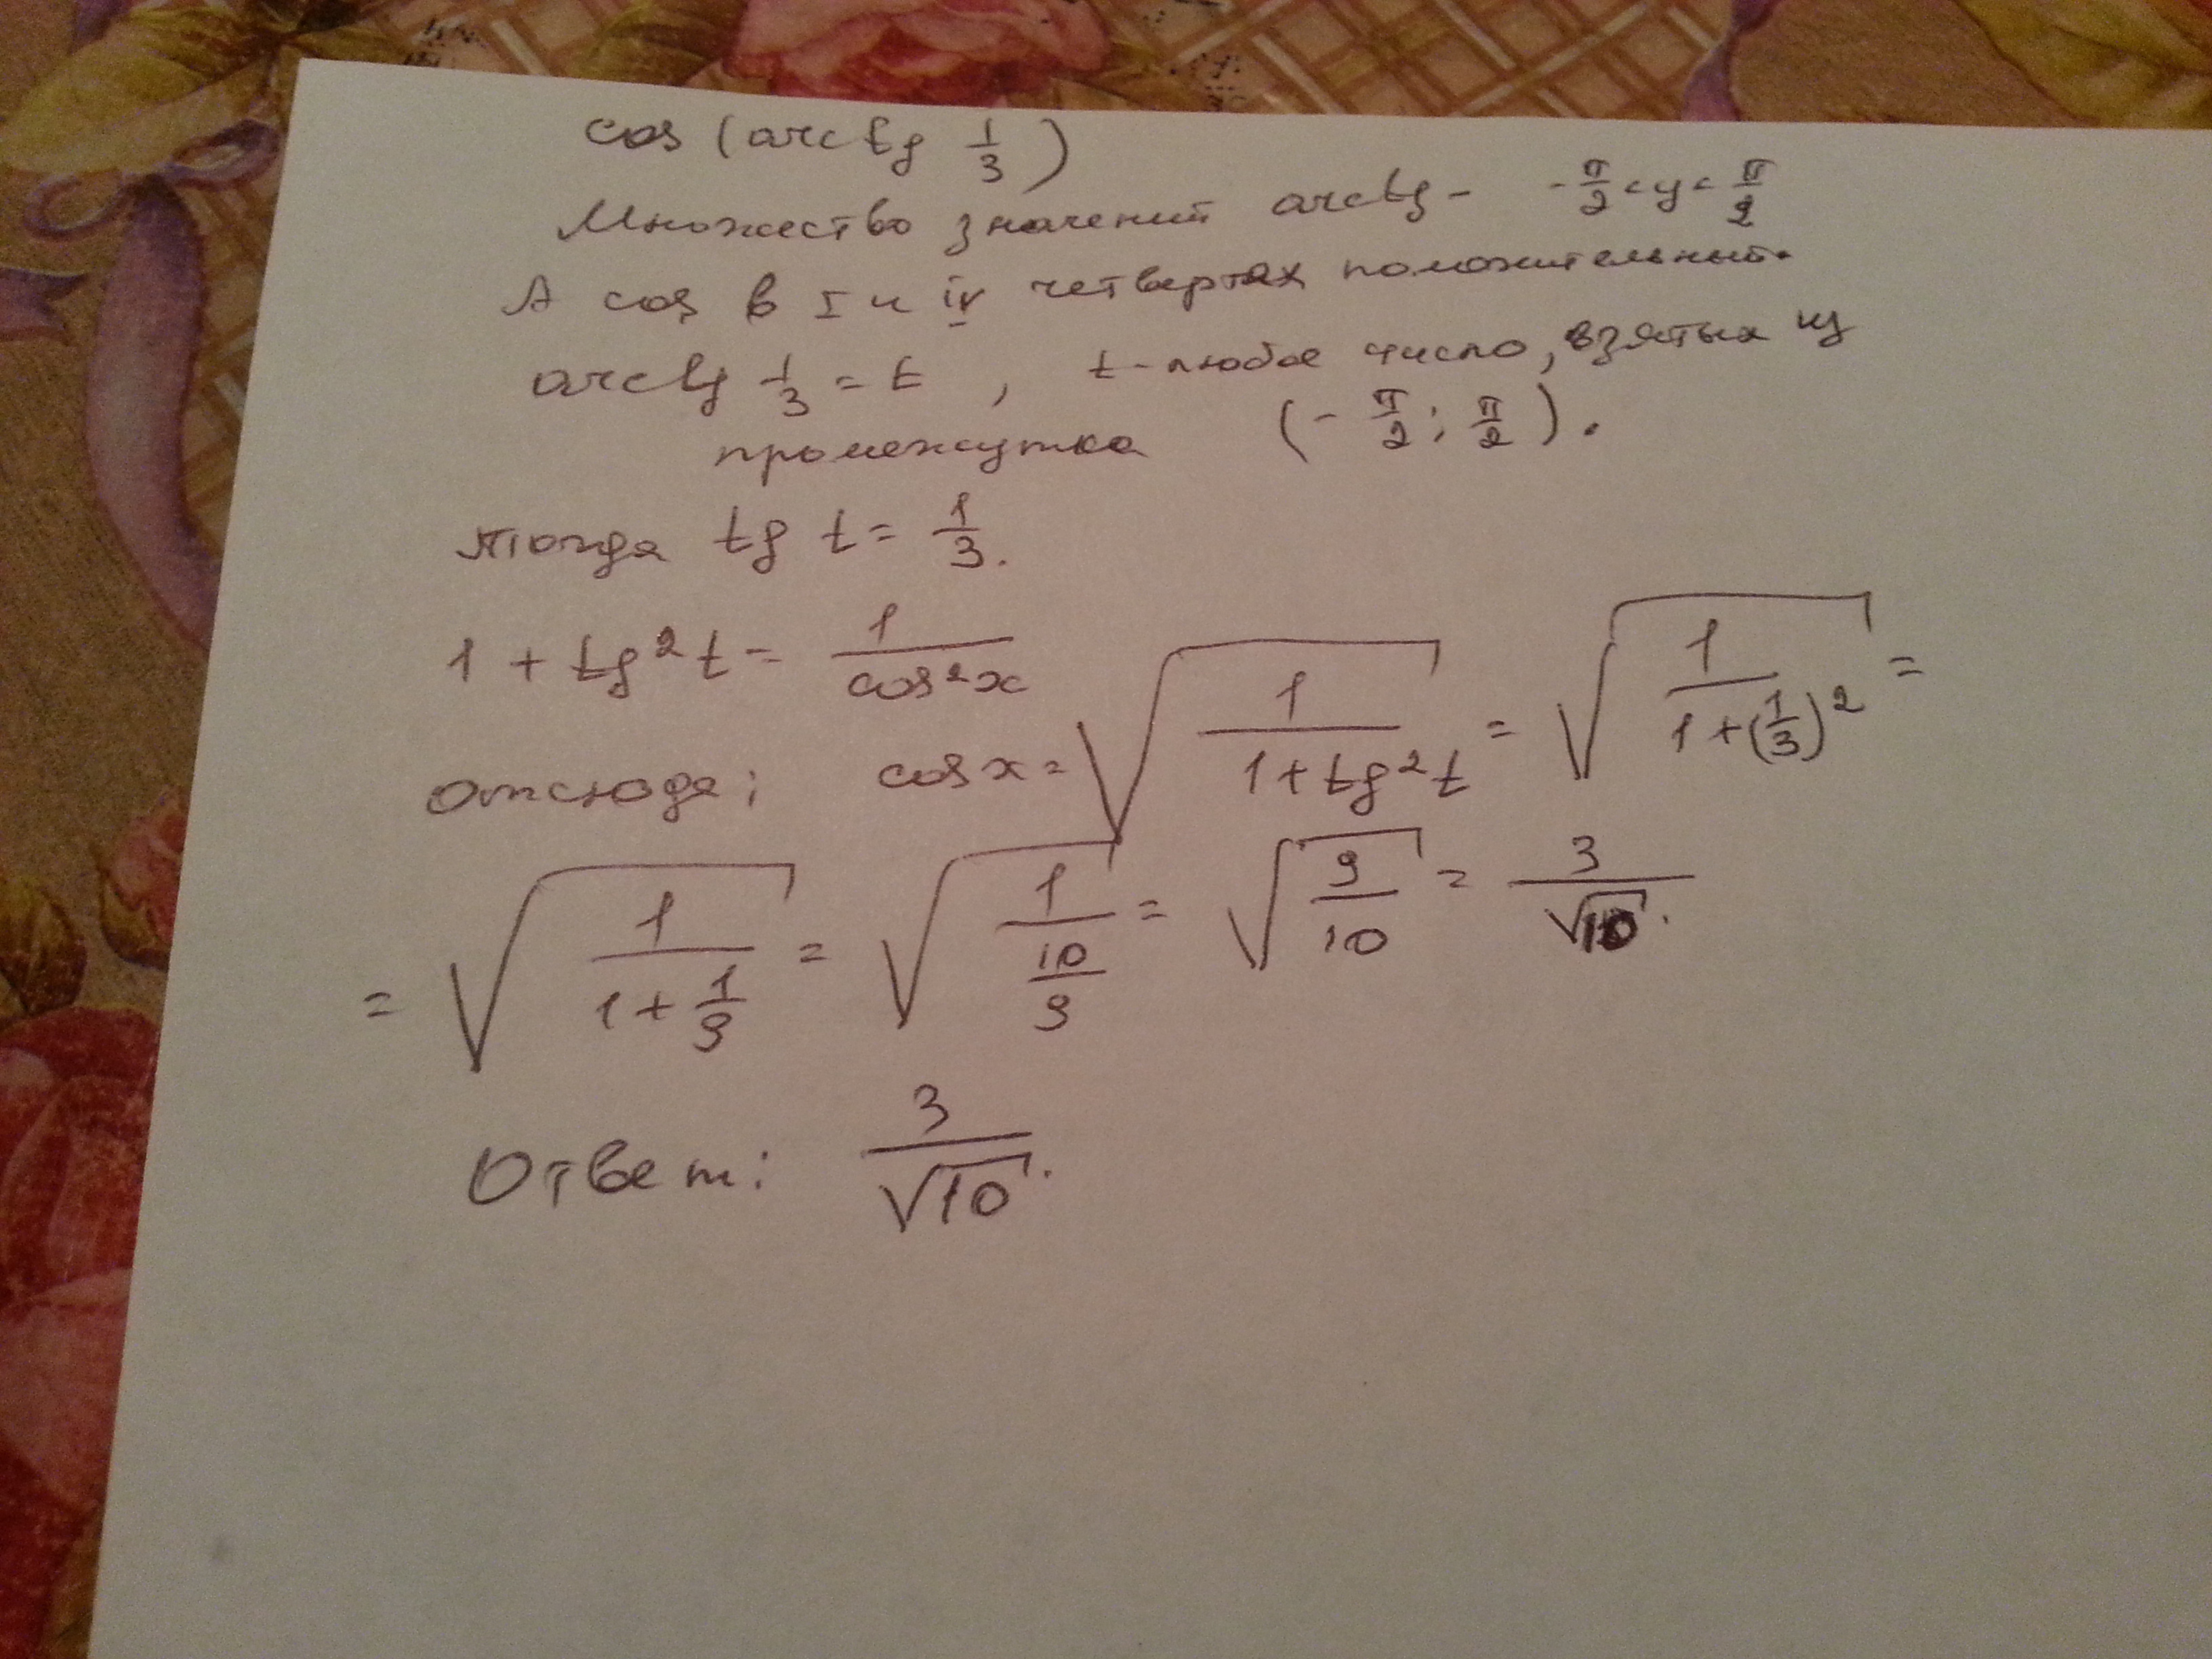 cos (arctg 1/3)
Множество значений arctg - -π/2 < y < π/2
А cos в I и IV четвертях положительный.
arctg 1/3 = t , t - любое число, взятых из
промежутка (- π/2 ; π/2 ).
Тогда tg t = 1/3.
1 + tg²t = 1/cos²x
Отсюда: cos x = √(1/(1+tg²t)) = √(1/(1+(1/3)²)) =
= √(1/(1+1/9)) = √(1/(10/9)) = √(9/10) = 3/√10.
Ответ: 3/√10.